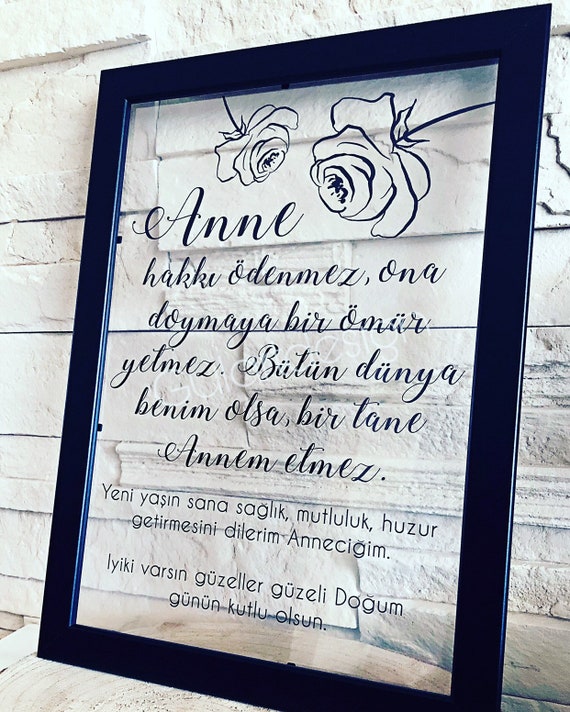 Anne
hakkı ödenmez, ona
doymaya bir ömür
yetmez. Bütün dünya
benim olsa, bir tane
Annem etmez.
Yeni yaşın sana sağlık, mutluluk, huzur
getirmesini dilerim Anneciğim.
Iyiki varsın güzeller güzeli Doğum
günün kutlu olsun.